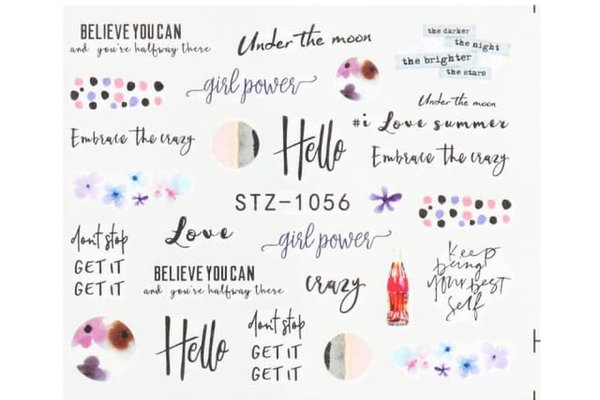 BELIEVE YOU CAN
and you're halfway there
Under the moon
the darker
the night
the brighter
the stars
girl power
Under the moon
#i Love summer
Embrace the crazy
Hello
Embrace the crazy
STZ-1056
dont stop
GET IT
GET IT
Love
girl power
BELIEVE YOU CAN
and you're halfway there
crazy
keep
being
your best
self
Hello
dont stop
GET IT
GET IT